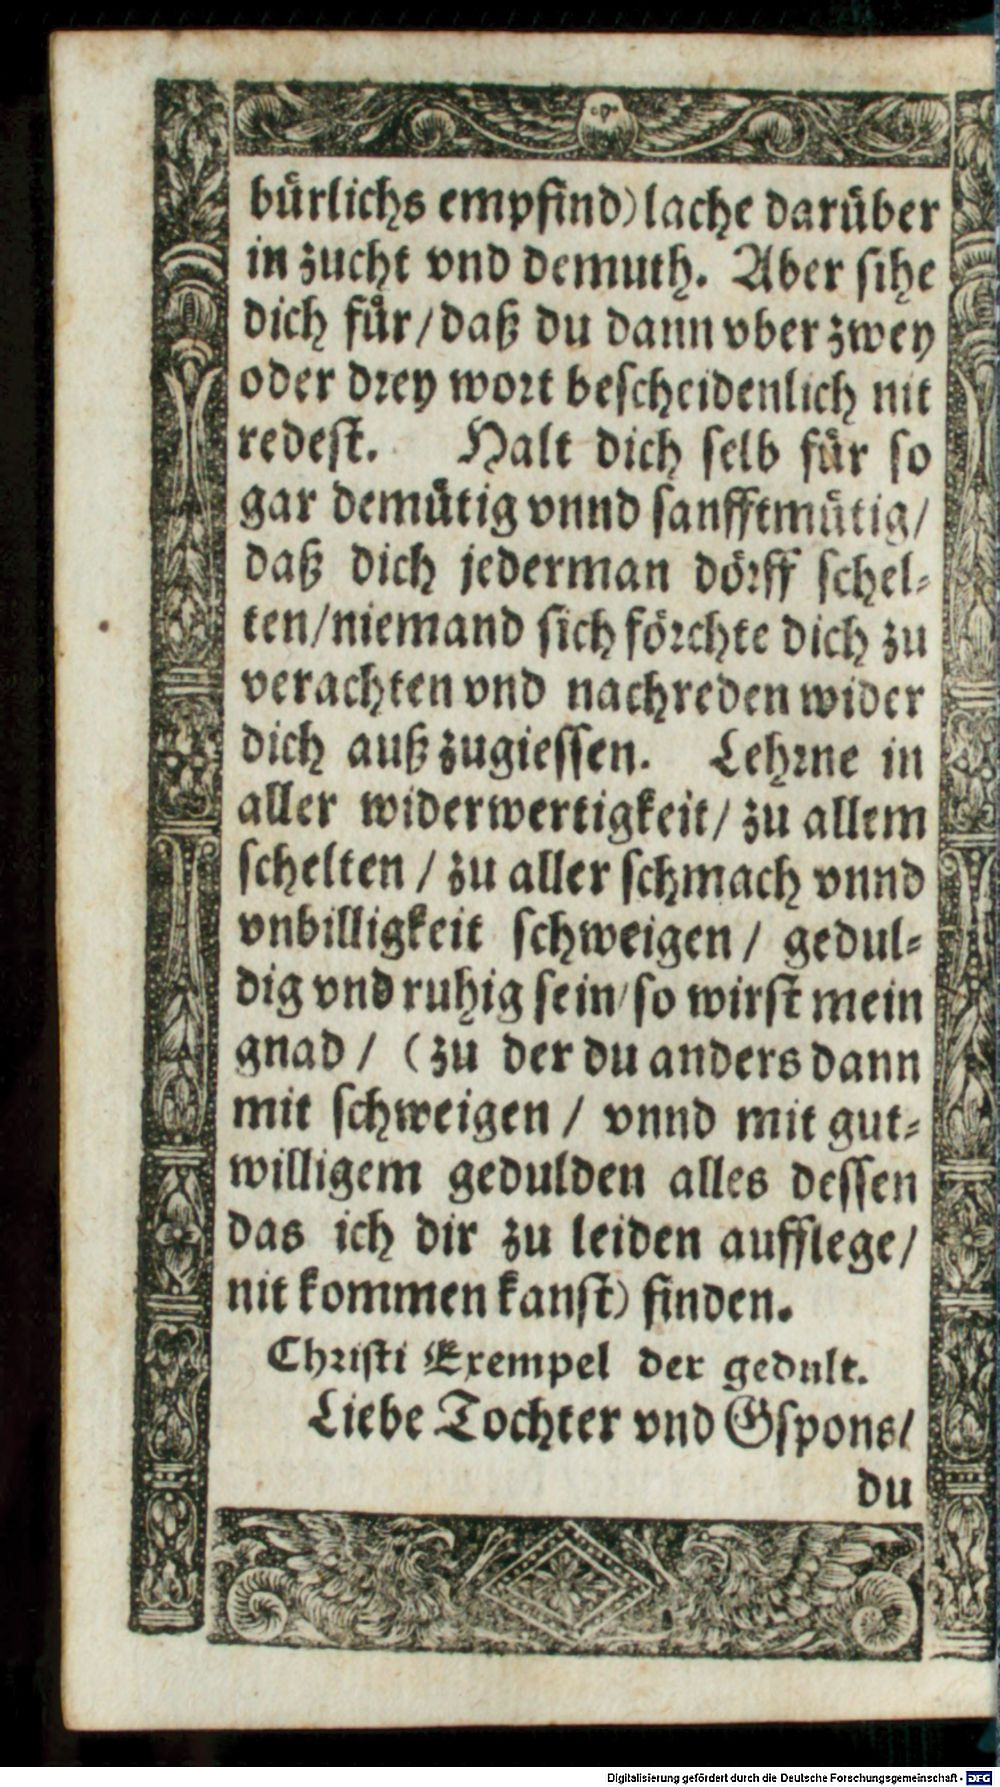 bürlichs empfind) lache darüber
in zucht vnd demuth. Aber sihe
dich für/ daß du dann vber zwey
oder drey wort bescheidenlich nit
redest. Halt dich selb für so
gar demütig vnnd sanfftmütig/
daß dich jederman dörff schel-
ten/ niemand sich förchte dich zu
verachten vnd nachreden wider
dich auß zugiessen. Lehrne in
aller widerwertigkeit/ zu allem
schelten / zu aller schmach vnnd
vnbilligkeit schweigen / gedul-
dig vnd ruhig sein/ so wirst mein
gnad / (zu der du anders dann
mit schweigen / vnnd mit gut-
willigem gedulden alles dessen
das ich dir zu leiden aufflege/
nit kommen kanst) finden.
Christi Exempel der gedult.
Liebe Tochter vnd Gspons/
du
Digitalisierung gefördert durch die Deutsche Forschungsgemeinschaft - DFG